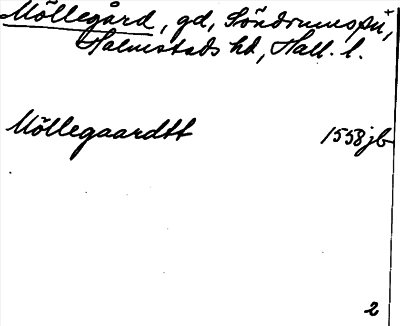 Möllegård, gd, Söndrums sn,
Halmstads hd, Hall. l.
Möllegaardtt 1558 jb
2